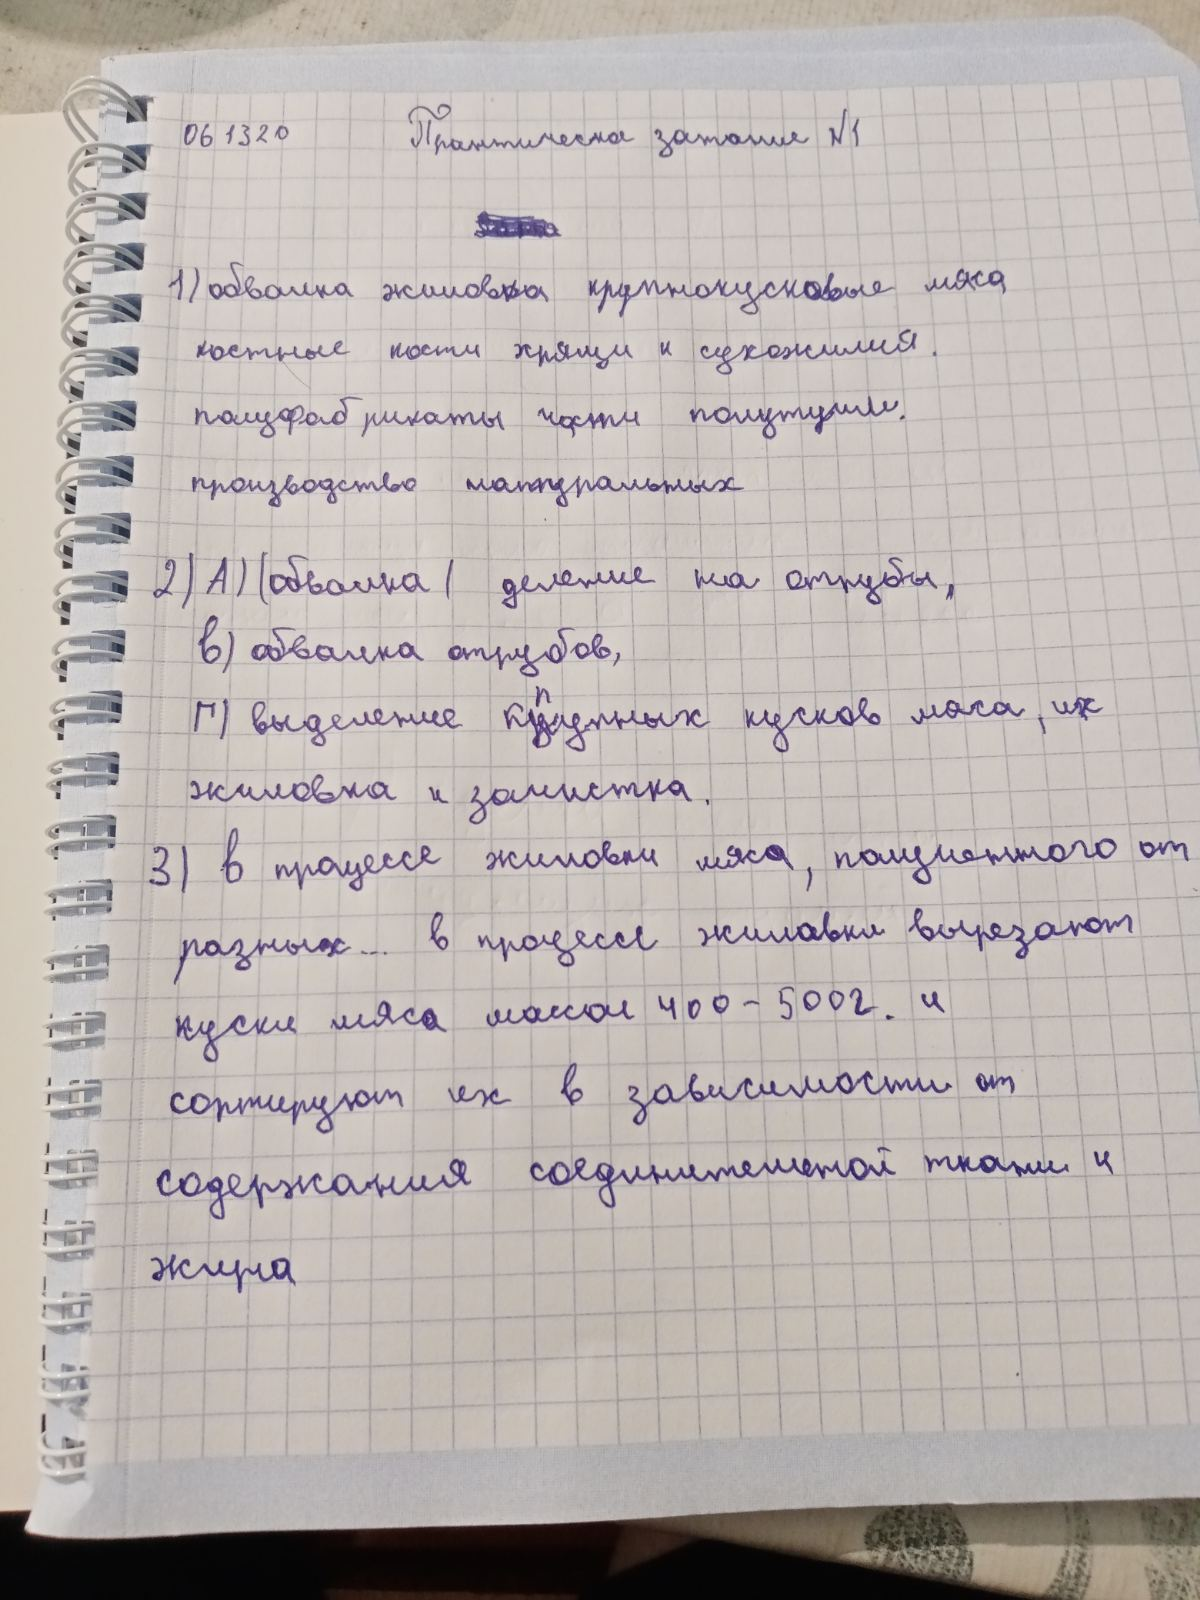 061320 Практическа затание №1
1) обвалка жиловка крупнокусковые мяса
костные кости хрящи и сухожилия.
полуфабрикаты части полутуши.
производство натуральных
2) А) (обвалка) деление на отрубы,
в) обвалка отрубов,
Г) выделение крупных кусков мяса, их
жиловка и зачистка.
3) в процессе жиловки мяса, полученного от
разных... в процессе жиловки вырезают
куски мяса массой 400-500г. и
сортируют их в зависимости от
содержания соединительной ткани и
жира